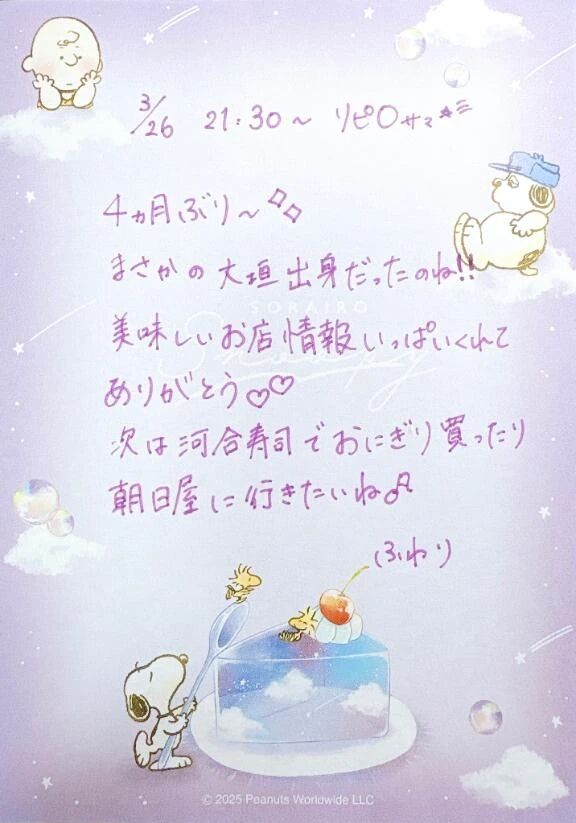 3/26 21:30～ リピ〇サマ☆彡
4ヵ月ぶり～
まさかの大垣出身だったのね!!
SORAIRO
Snoopy
美味しいお店情報いっぱいくれて
ありがとう♡♡
次は河合寿司でおにぎり買ったり
朝日屋に行きたいね♫
ふわり
© 2025 Peanuts Worldwide LLC